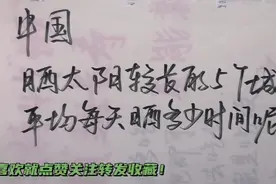 中国
晒太阳较长的5个城
平均每天晒多少时间呢
喜欢就点赞关注转发收藏！